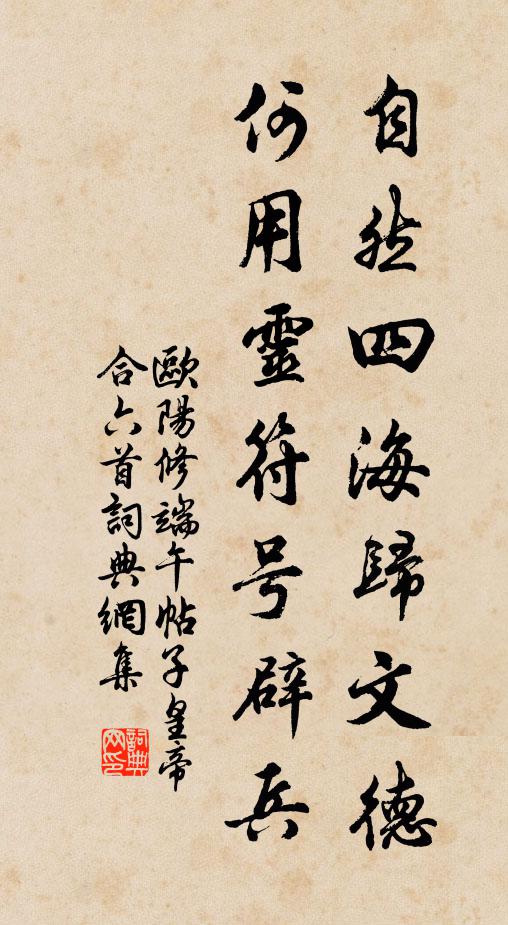 自然四海歸文德
何用靈符号辟兵
歐陽修端午帖子皇帝
合六首詞典網集
詞典
网印